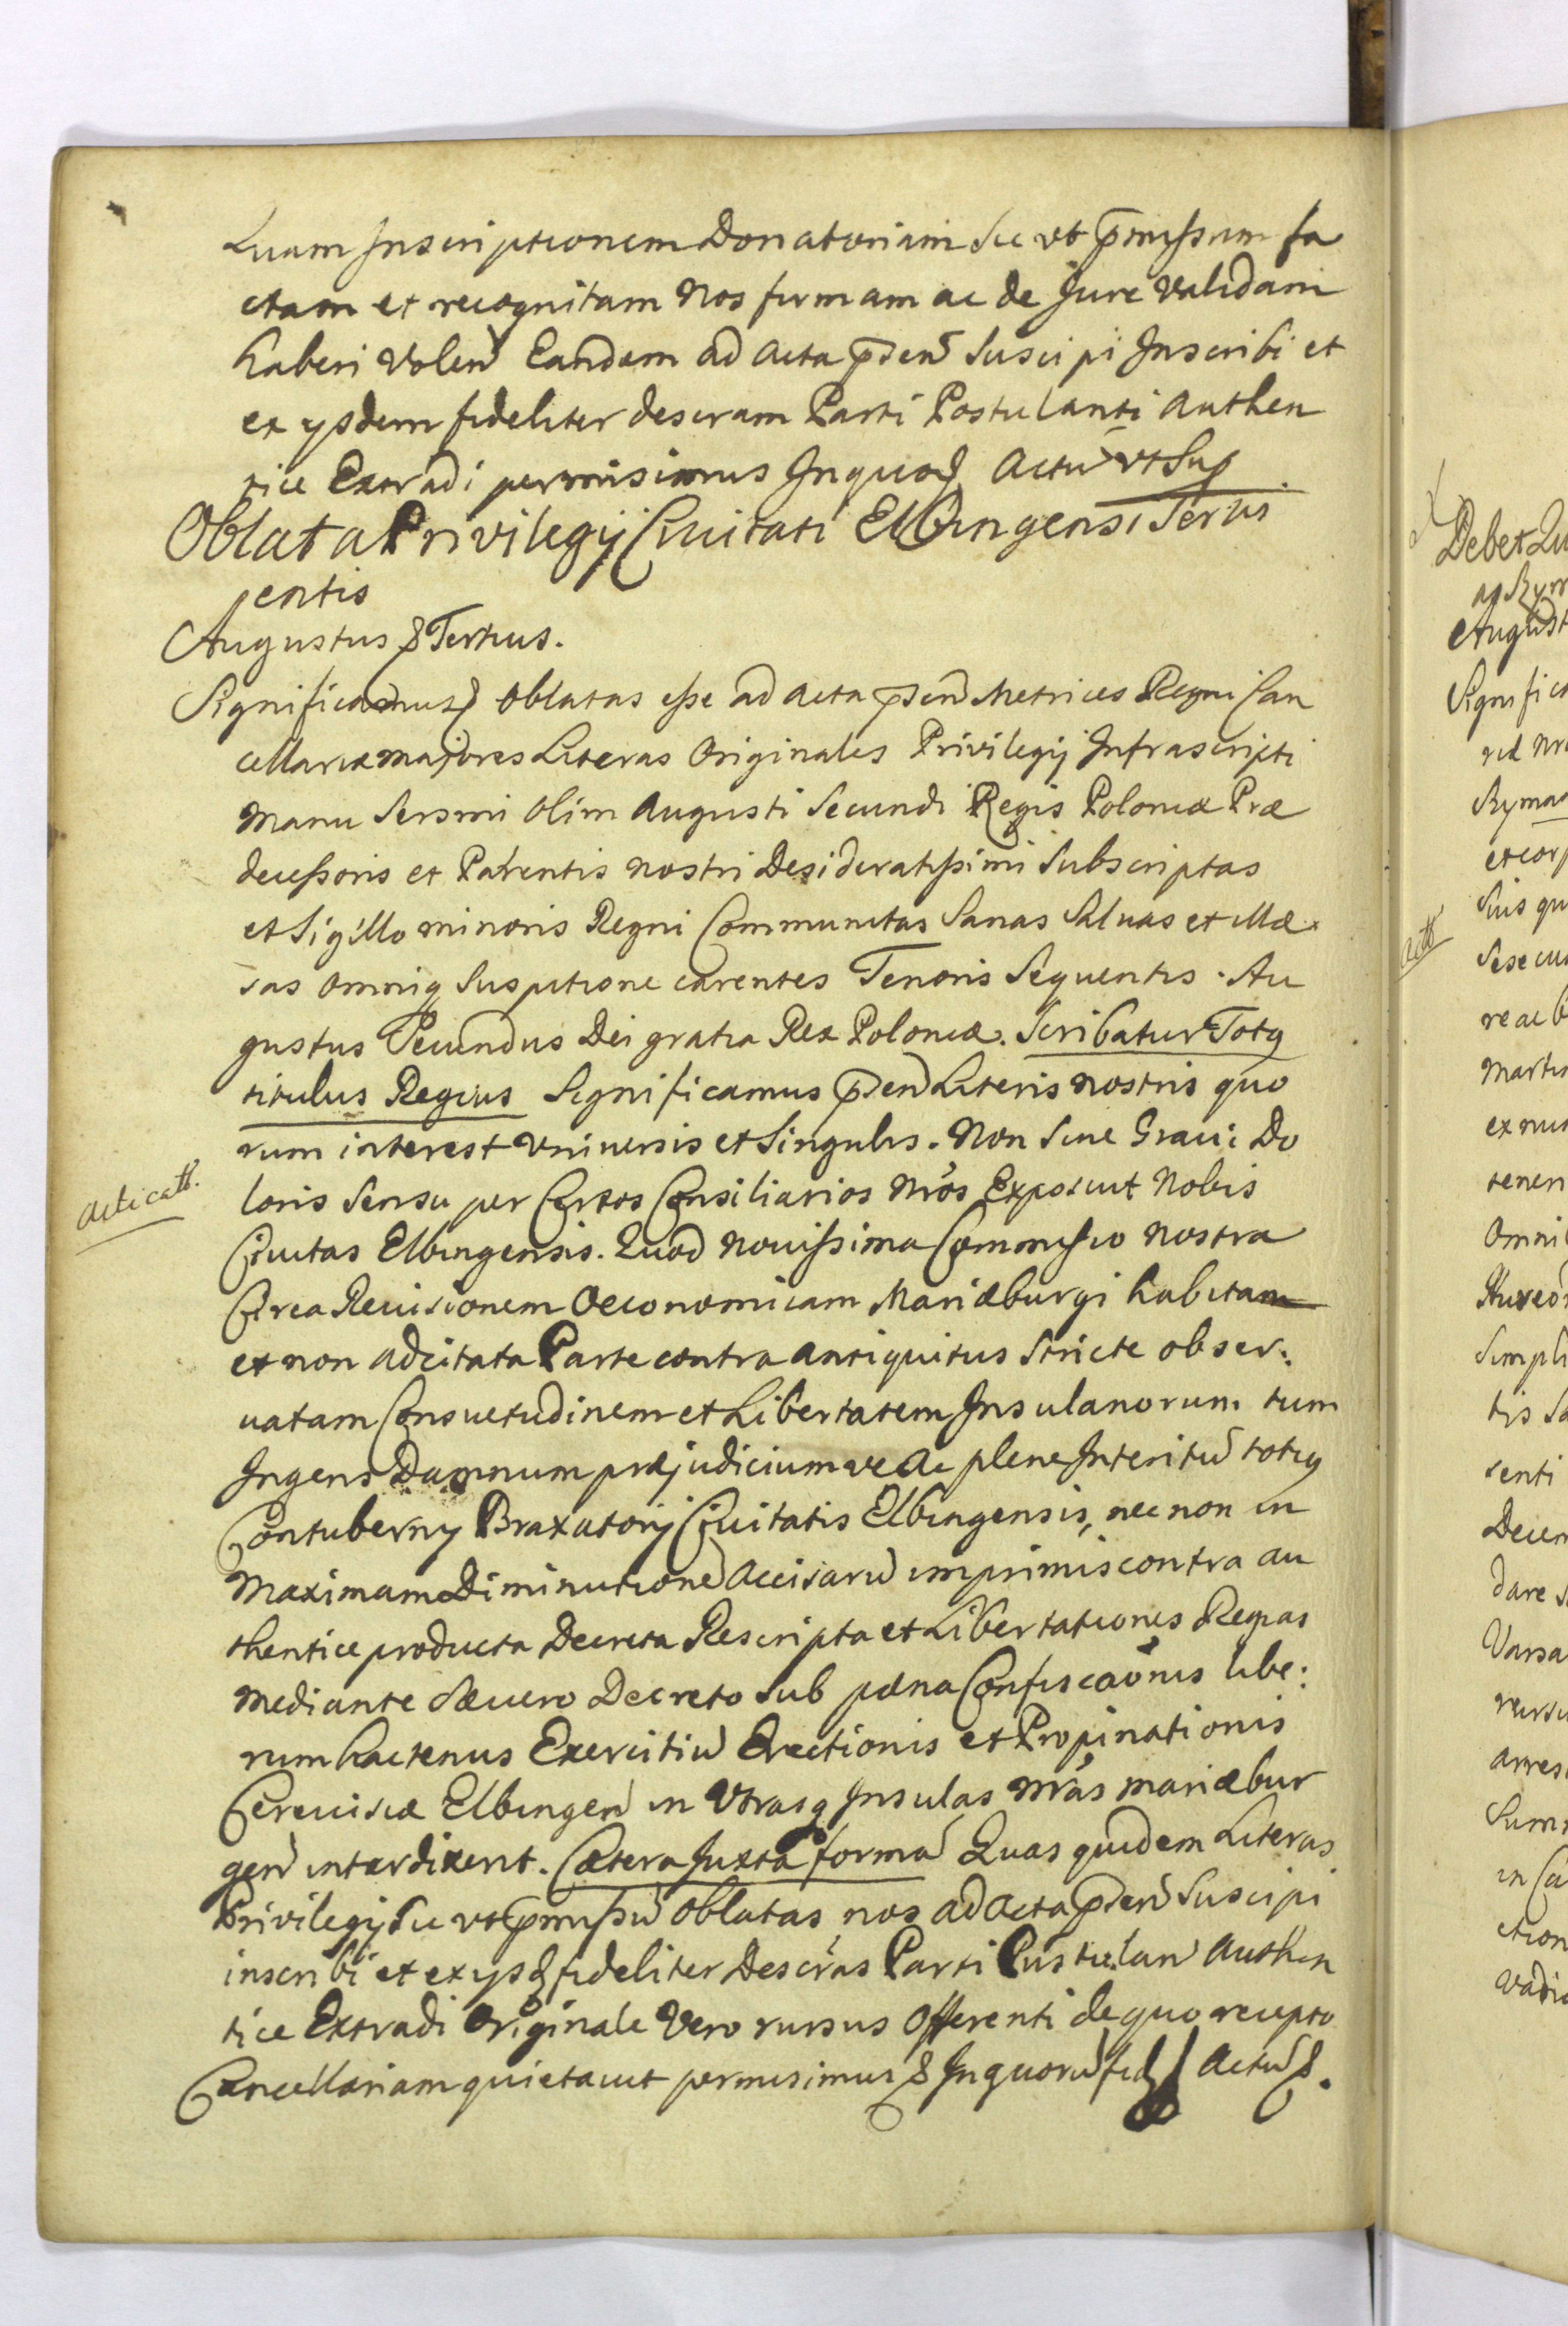 Quam Inscriptionem Donatoriam Sic ut p̄missum fa
ctam et recognitam Nos firmam ac de Jure Validam
haberi Volen Eandem ad Acta p̄sen Suscipi Inscribi et
ex ysdem fideliter descram Parti Postulanti Authen
tice Extradi permisimus Inquor Actu ut Sup
Oblata Privilegij Civitati Elbingensi Servi
entis
Augustus Tertius.
Significamus Oblatas esse ad Acta p̄sen Metrices Regni Can
cellariæ majores Literas Originales Privilegij Infrascripti
Manu Sersmi Olim Augusti Secundi Regis Poloniæ Præ
decessoris et Parentis nostri Desideratissimi Subscriptas
et Sigillo minoris Regni Communitas Sanas Saluas et Illæ
sas omniq Suspitione carentes Tenoris Sequentis. Au
gustus Secundus Dei gratia Rex Poloniæ. Scribatur Totq
titulus Regius Significamus p̄sen Literis nostris quo
rum interest Vniversis et Singulis. Non Sine Graui Do
acticatt.
loris Sensu per Certos Consiliarios Nrōs Exposuit Nobis
Ciuitas Elbingensis. Quod Nouissima Commissio Nostra
Circa Reuisionem Oeconomicam Mariæburgi habitam
et non adcitata Parte contra antiquitus Stricte obser:
uatam Consuetudinem et Libertatem Insulanorum tum
Ingens Damnum præjudiciumve Ac plene Interitū totiq
Contuberny Braxatorij Ciuitatis Elbingensis, nec non in
Maximam Diminutionē Accisarū imprimis contra au
thentice producta Decreta Rescripta et Libertationes Regias
mediante Sæuero Decreto Sub pæna Confiscaōnis libe:
rum hactenus Exercitiū Erectionis et Propinationis
Cereuisiæ Elbingen in Vtrasq Insulas Nrās Mariæbur
gen interdixerit. Cætera Juxta formā Quas quidem Literas
Privilegij Sic ut p̄missū oblatas nos ad Acta p̄sen Suscipi
inscribi et ex ysd fideliter Descrās Parti Pustulan Authen
tice Extradi Originale Vero rursus Offerenti de quo recepto
Cancellariam quietauit permisimus & Inquorū fid Actu &.
Debet
Augus
Signific
Rymar
et cor
Suis qu
Sese
re ac
Martis
ex
tenen
Omni
Simpli
tis
senti
Decem
dare
Varsa
rursu
arres
Summ
in Ca
ction
vadi